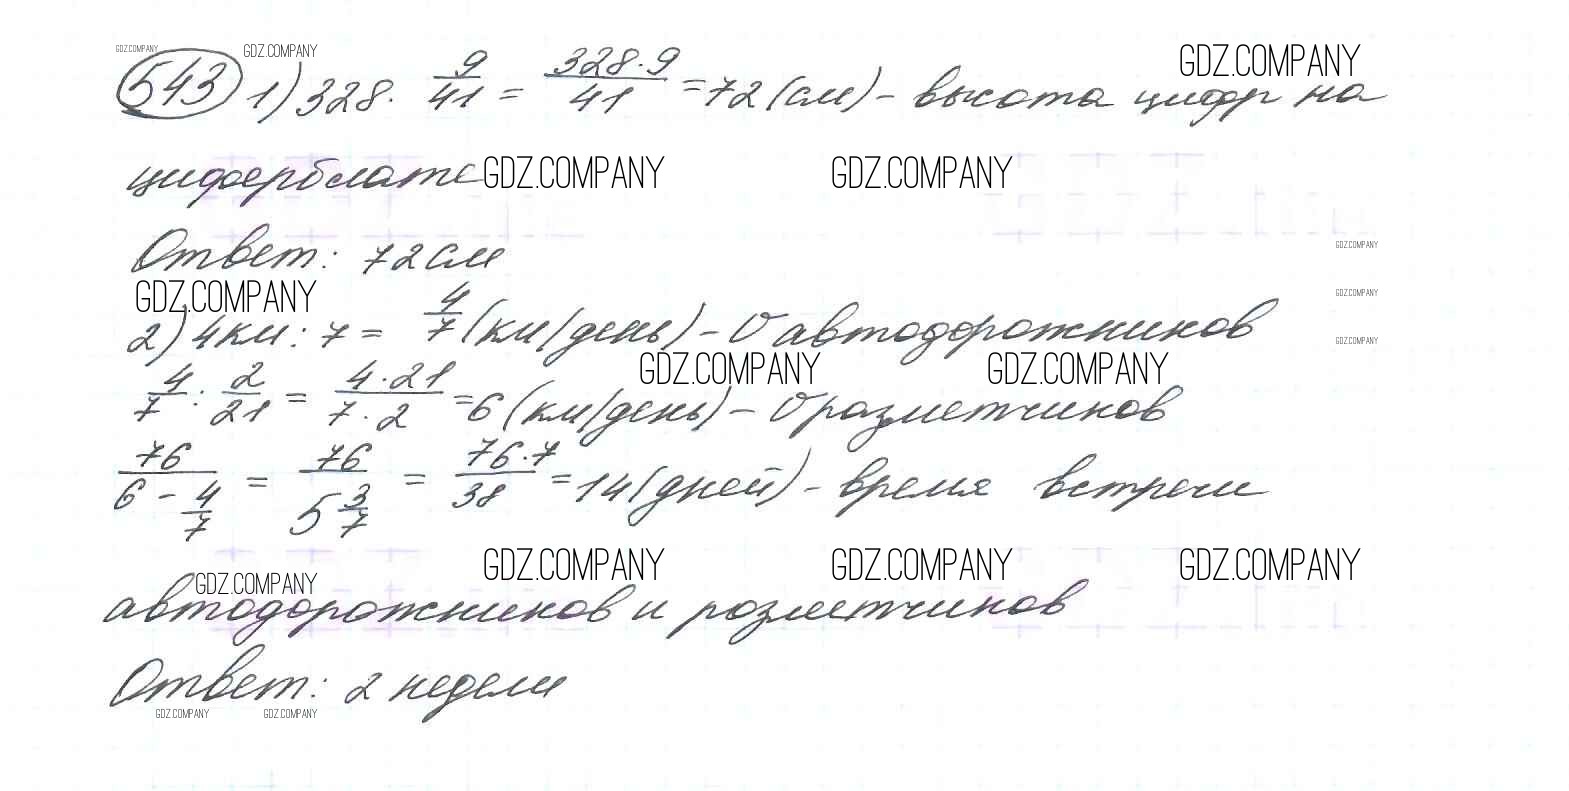 GDZ.COMPANY GDZ.COMPANY GDZ.COMPANY
543 1) 328 · 9/41 = 328·9/41 = 72 (см) – высота цифр на
циферблате GDZ.COMPANY GDZ.COMPANY
Ответ: 72 см GDZ.COMPANY
GDZ.COMPANY GDZ.COMPANY
2) 4км : 7 = 4/7 (км/день) – V автодорожников GDZ.COMPANY
GDZ.COMPANY GDZ.COMPANY
4/7 : 2/21 = 4·21/7·2 = 6 (км/день) – V разметчиков
76/(6 – 4/7) = 76/(5 3/7) = 76·7/38 = 14 (дней) – время встречи
GDZ.COMPANY GDZ.COMPANY GDZ.COMPANY GDZ.COMPANY
автодорожников и розметчиков
Ответ: 2 недели
GDZ.COMPANY GDZ.COMPANY